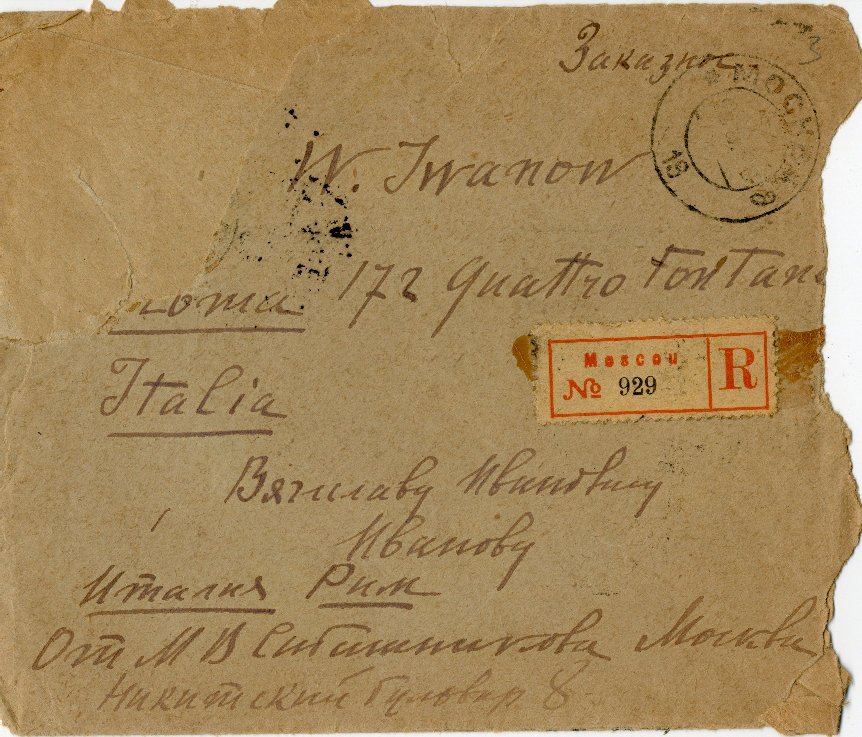 Заказное
МОСКВА
W. Iwanow
Roma 172 Quattro Fontane
Italia
Moscou
№ 929
R
Вячеславу Ивановичу
Иванову
Италия Рим
От М В Сабашникова Москва
Никитский бульвар 8